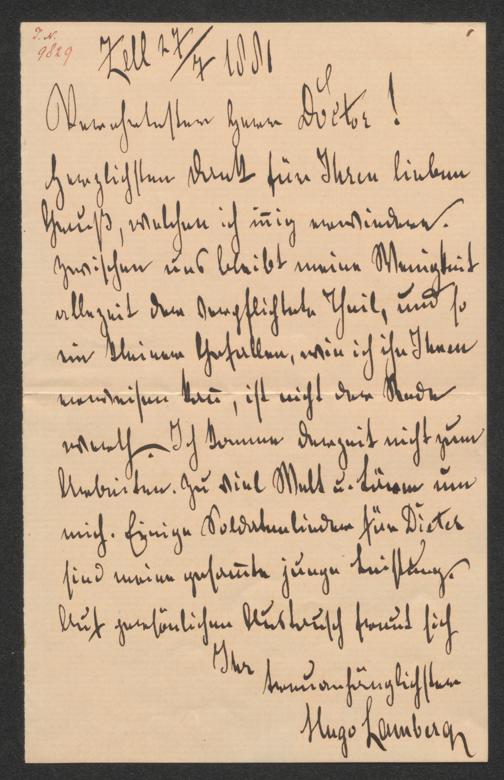 I.N.
9829
Zell 27/7 1881
Verehrtester Herr Doctor!
Herzlichsten Dank für Ihren lieben
Gruß, welchen ich innig erwiedere.
Zwischen uns bleibt meine Wenigkeit
allezeit der verpflichtete Theil, und so
ein kleiner Gefallen, wie ich ihn Ihnen
erweisen kann, ist nicht der Rede
werth. Ich komme derzeit nicht zum
Arbeiten. Zu viel Welt u. Lärm um
mich. Einige Soldatenlieder für
sind meine gesammte junge Leistung.
Auf persönlichen Austausch freut sich
Ihr
treuanhänglichster
Hugo Lamberg